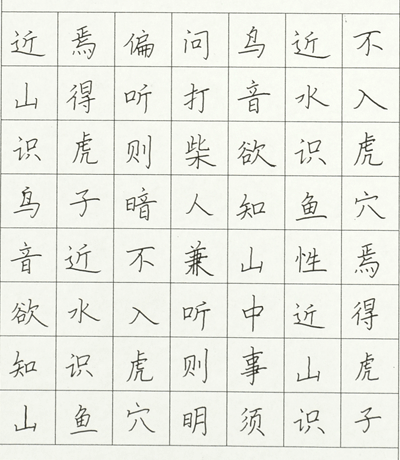 不入虎穴焉得虎子
近水识鱼性近山识
鸟音欲知山中事须
问打柴人兼听则明
偏听则暗不入虎穴
焉得虎子近水识鱼
近山识鸟音欲知山